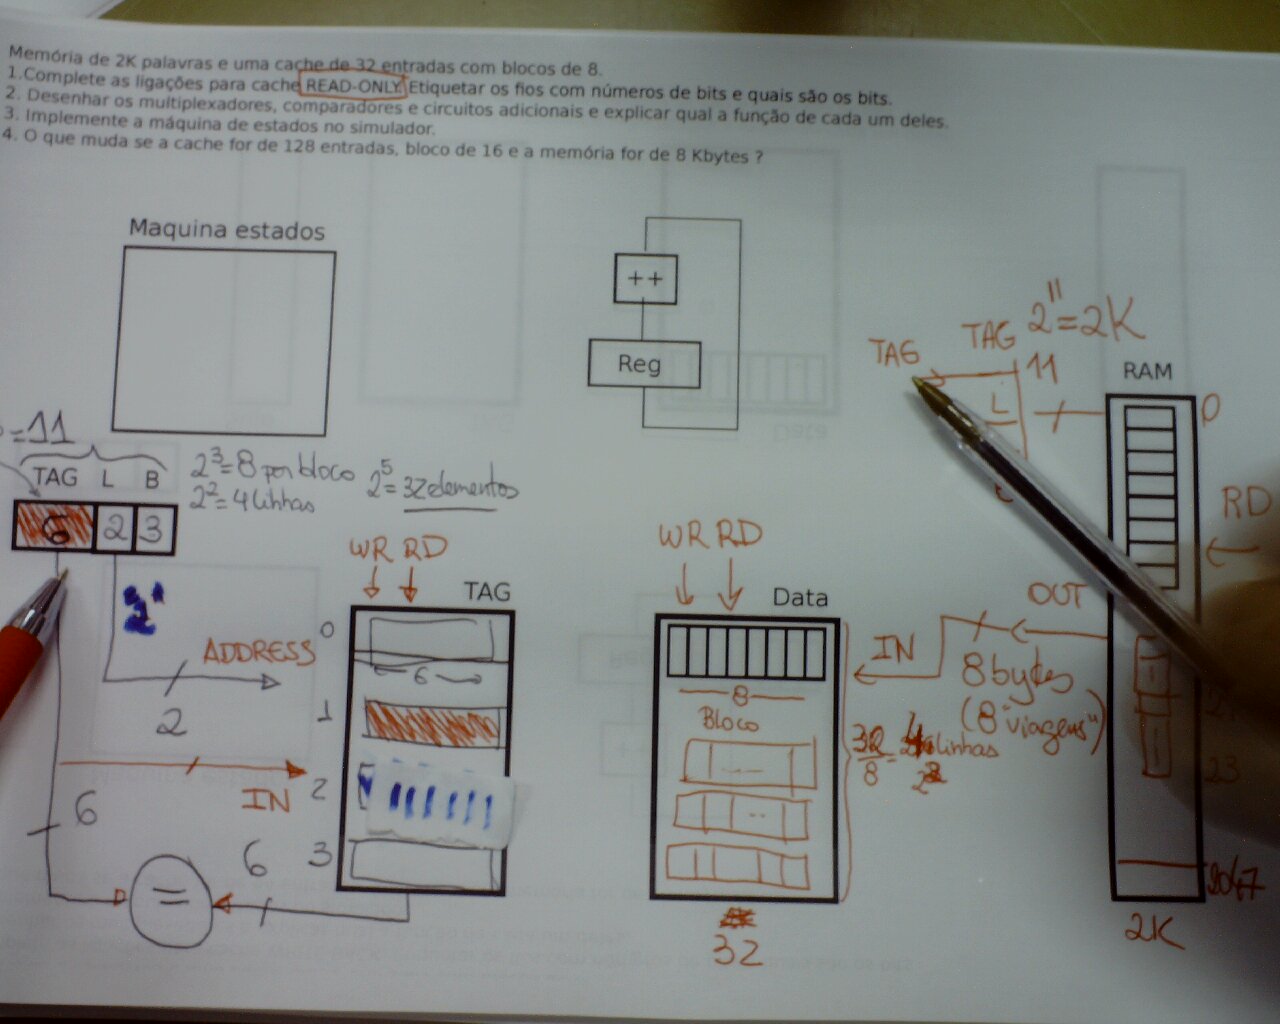 Memória de 2K palavras e uma cache de 32 entradas com blocos de 8.
1.Complete as ligações para cache READ-ONLY. Etiquetar os fios com números de bits e quais são os bits.
2. Desenhar os multiplexadores, comparadores e circuitos adicionais e explicar qual a função de cada um deles.
3. Implemente a máquina de estados no simulador.
4. O que muda se a cache for de 128 entradas, bloco de 16 e a memória for de 8 Kbytes ?
Maquina estados
++
Reg
TAG
TAG 2^11=2K
11
L
RAM
0
RD
=11
TAG L B
6 2 3
2^3=8 por bloco
2^2=4 linhas
2^5=32 elementos
WR RD
TAG
WR RD
Data
OUT
IN
8 bytes
(8 "viagens")
ADDRESS
2
0
6
1
8
Bloco
32/8
linhas
23
IN
2
6
6
3
=
2047
2K
32